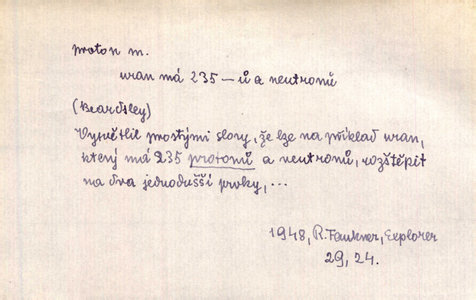 proton m.
uran má 235 — ů a neutronů
(Beardsley)
Vysvětlil prostými slovy, že lze na příklad uran,
který má 235 protonů a neutronů, rozštěpit
na dva jednodušší prvky, ...
1948, R. Faukner, Explorer
29, 24.